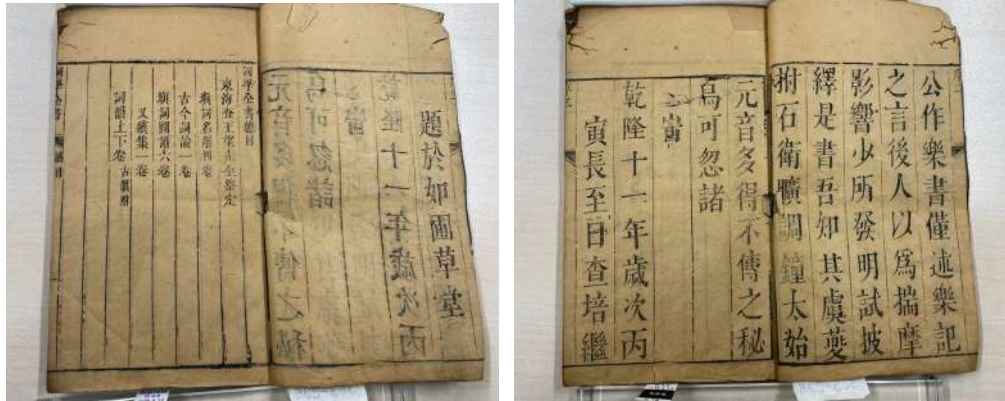 題於如圃草堂
詞學全書總目
東海查王望先生鑒定
填詞名解四卷
古今詞論一卷
填詞圖譜六卷
又續集一卷
詞韻上下卷 古韻附
公作樂書僅述樂記
之言後人以爲揣摩
影響少所發明試披
繹是書吾知其虞夔
拊石衛曠調鐘太始
元音多得不傳之秘
烏可忽諸
旹
乾隆十一年歲次丙
寅長至日查培繼